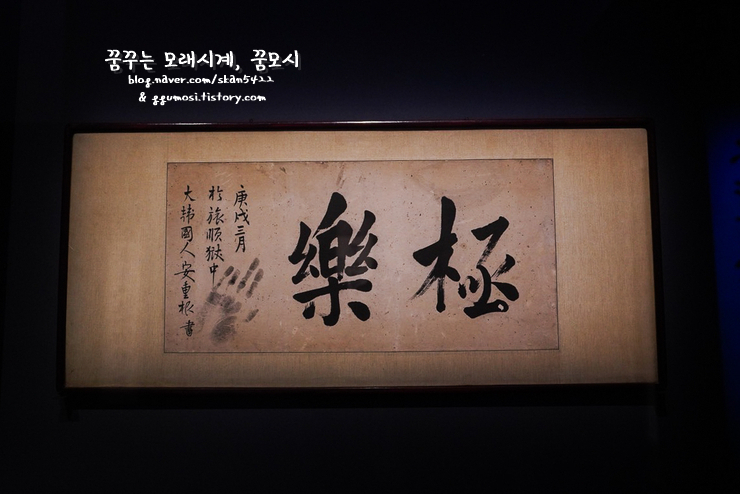 꿈꾸는 모래시계, 꿈모시
blog.naver.com/skan5422
& ggumosi.tistory.com
極樂
庚戌三月
於旅順獄中
大韓國人安重根書